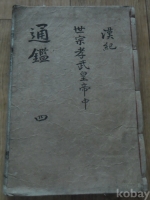 漢紀
世宗孝武皇帝中
通鑑 四
kobay